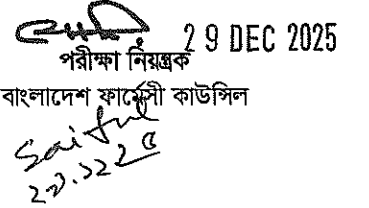 29 DEC 2025
পরীক্ষা নিয়ন্ত্রক
বাংলাদেশ ফার্মেসী কাউন্সিল
Saiful
২৯.১২.২৫